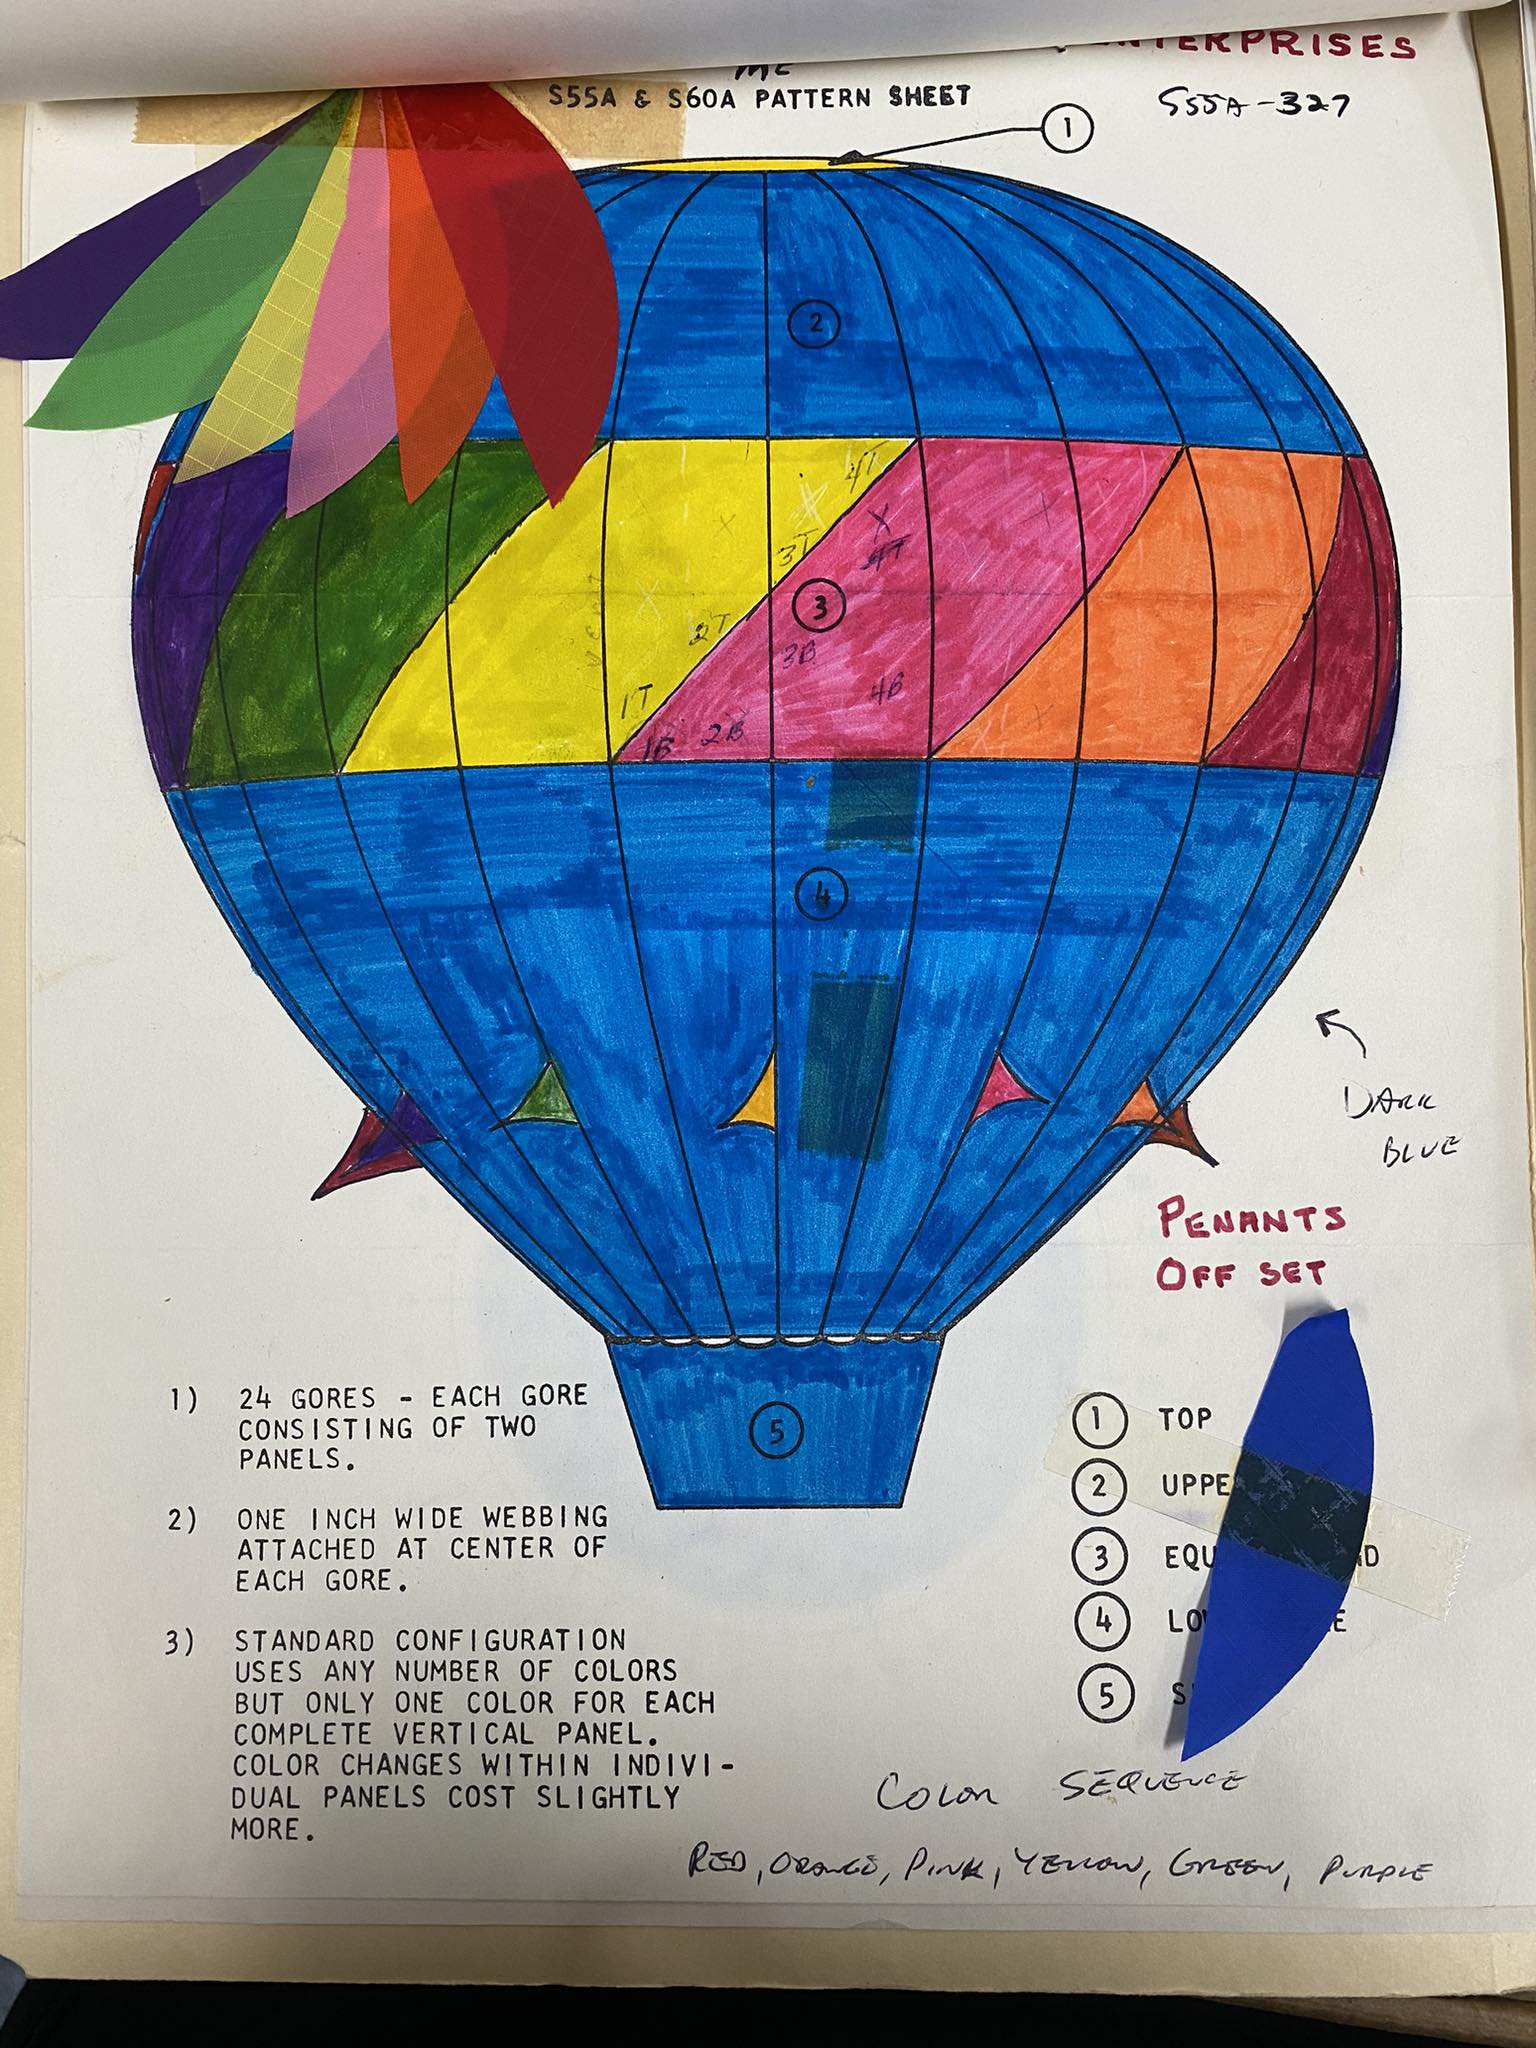 ENTERPRISES
S55A & S60A PATTERN SHEET
S55A-327
1
2
4T
X
3T
4T
3
2T
3B
1T
4B
1B
2B
4
DARK
BLUE
PENANTS
OFF SET
5
1) 24 GORES - EACH GORE
CONSISTING OF TWO
PANELS.
2) ONE INCH WIDE WEBBING
ATTACHED AT CENTER OF
EACH GORE.
3) STANDARD CONFIGURATION
USES ANY NUMBER OF COLORS
BUT ONLY ONE COLOR FOR EACH
COMPLETE VERTICAL PANEL.
COLOR CHANGES WITHIN INDIVI-
DUAL PANELS COST SLIGHTLY
MORE.
1 TOP
2 UPPE
3 EQU
4 LO
5 S
COLOR SEQUENCE
RED, ORANGE, PINK, YELLOW, GREEN, PURPLE